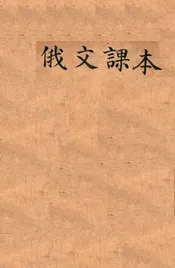 俄文課本